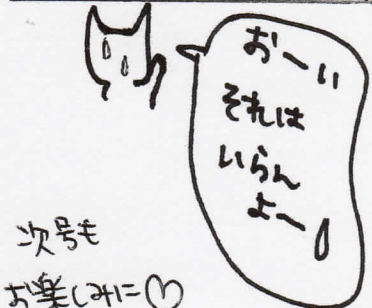 お〜い
それは
いらん
よ〜
次号も
お楽しみに♡